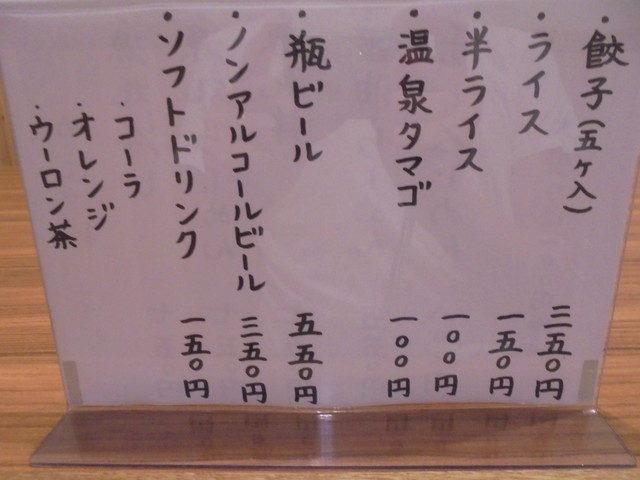 ・餃子(五ヶ入) 三五〇円
・ライス 一五〇円
・半ライス 一〇〇円
・温泉タマゴ 一〇〇円
・瓶ビール 五五〇円
・ノンアルコールビール 三五〇円
・ソフトドリンク 一五〇円
・コーラ
・オレンジ
・ウーロン茶